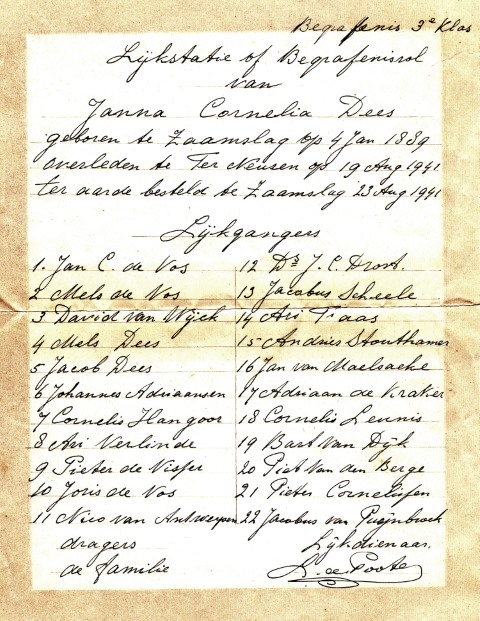 Begrafenis 3e Klas
Lijkstatie of Begrafenisrol
van
Janna Cornelia Dees
geboren te Zaamslag op 4 Jan 1889
overleden te Ter Neusen op 19 Aug 1941
ter aarde besteld te Zaamslag 23 Aug 1941
Lijkgangers
1. Jan C. de Vos
2 Mels de Vos
3. David van Wijck
4 Mels Dees
5 Jacob Dees
6 Johannes Adriaansen
7 Cornelis Hangoor
8 Ari Verlinde
9 Pieter de Visser
10 Joris de Vos
11 Nico van Antwerpen
dragers
de familie
12 Ds J. C. Drost.
13 Jacobus Scheele
14 Ari Faas
15 Andries Stouthamer
16 Jan van Maelsaeke
17 Adriaan de Kraker
18 Cornelis Leunis
19 Bart van Dijk
20 Piet van den Berge
21 Pieter Cornelissen
22 Jacobus van Puijnbroek
Lijkdienaar.
L. de Poote